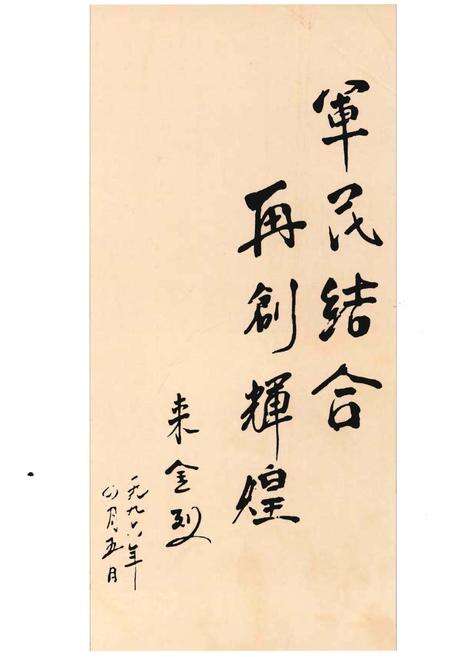 軍民結合
再創輝煌
来金烈
一九九六年
月五日